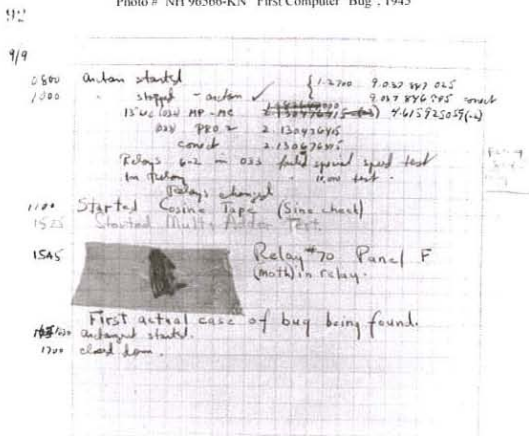 Photo # NH 96566-KN "First Computer "Bug", 1945
92
9/9
0800 antan started
1000 " stopped - antan ✓ { 1.2700 9.037 847 025
9.037 846 995 correct
13"uc (032) MP - MC 4.615925059(-2)
(033) PRO 2 2.130476415
correct 2.130676415
Relays 6-2 in 033 failed special speed test
in relay " test.
Relays changed
1100 Started Cosine Tape (Sine check)
1525 Started Multi Adder Test.
1545 Relay #70 Panel F
(moth) in relay.
First actual case of bug being found.
1630 antangent started.
1700 closed down.